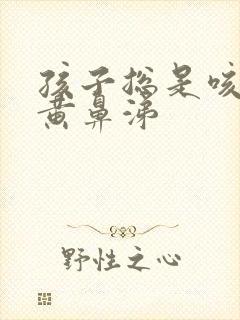 孩子总是咳
黄鼻涕
野性之心